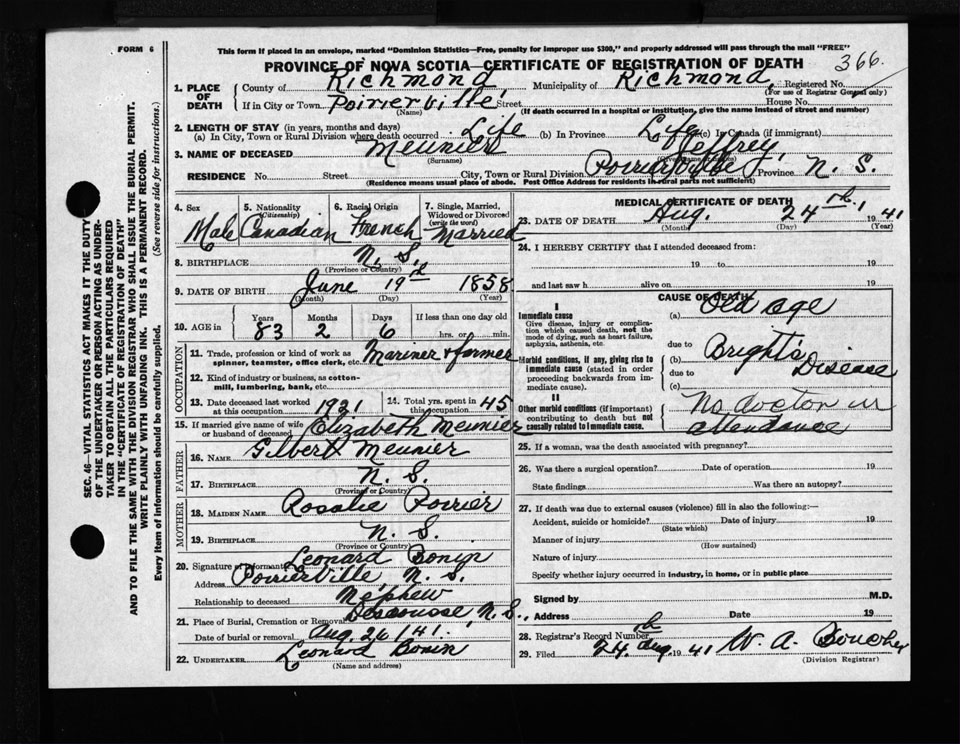 FORM 6
This form if placed in an envelope, marked "Dominion Statistics—Free, penalty for improper use $300," and properly addressed will pass through the mail "FREE"
PROVINCE OF NOVA SCOTIA—CERTIFICATE OF REGISTRATION OF DEATH
366
1. PLACE OF DEATH
County of Richmond Municipality of Richmond Registered No.
(For use of Registrar General only)
If in City or Town Poirierville Street House No.
(Name) (If death occurred in a hospital or institution, give the name instead of street and number)
2. LENGTH OF STAY (in years, months and days)
(a) In City, Town or Rural Division where death occurred Life (b) In Province Life (c) In Canada (if immigrant)
3. NAME OF DECEASED Meunier Jeffrey,
(Surname)
RESIDENCE No. Street City, Town or Rural Division Poirierville Province N. S.
(Residence means usual place of abode. Post Office Address for residents in rural parts not sufficient)
4. Sex Male
5. Nationality (Citizenship) Canadian
6. Racial Origin French
7. Single, Married, Widowed or Divorced (write the word) Married
8. BIRTHPLACE N. S.
(Province or Country)
9. DATE OF BIRTH June 19th 1858
(Month) (Day) (Year)
10. AGE in Years Months Days If less than one day
83 2 6 hrs. or min.
OCCUPATION
11. Trade, profession or kind of work as spinner, teamster, office clerk, etc. Mariner & farmer
12. Kind of industry or business, as cotton-mill, lumbering, bank, etc.
13. Date deceased last worked at this occupation 1921
14. Total yrs. spent in this occupation 45
15. If married give name of wife or husband of deceased Elizabeth Meunier
FATHER
16. NAME Gilbert Meunier
17. BIRTHPLACE N. S.
(Province or Country)
MOTHER
18. MAIDEN NAME Rosalie Poirier
19. BIRTHPLACE N. S.
(Province or Country)
20. Signature of informant Leonard Bonin
Address Poirierville, N. S.
Relationship to deceased Nephew
21. Place of Burial, Cremation or Removal Descousse, N. S.
Date of burial or removal Aug. 26/41.
22. UNDERTAKER Leonard Bonin
(Name and address)
MEDICAL CERTIFICATE OF DEATH
23. DATE OF DEATH Aug. 24th, 1941
(Month) (Day) (Year)
24. I HEREBY CERTIFY that I attended deceased from:
19 to 19
and last saw h alive on 19
CAUSE OF DEATH
I
Immediate cause
Give disease, injury or complication which caused death, not the mode of dying, such as heart failure, asphyxia, asthenia, etc.
(a) Old age
due to
Morbid conditions, if any, giving rise to immediate cause (stated in order proceeding backwards from immediate cause)
(b) Bright's Disease
due to
(c)
II
Other morbid conditions (if important) contributing to death but not causally related to immediate cause.
No doctor in attendance
25. If a woman, was the death associated with pregnancy?
26. Was there a surgical operation? Date of operation 19
State findings Was there an autopsy?
27. If death was due to external causes (violence) fill in also the following:—
Accident, suicide or homicide? Date of injury 19
(State which)
Manner of injury
(How sustained)
Nature of injury
Specify whether injury occurred in industry, in home, or in public place
Signed by M.D.
Address Date 19
28. Registrar's Record Number
29. Filed 24th Aug. 1941 W. A.
(Division Registrar)
SEC. 46—VITAL STATISTICS ACT MAKES IT THE DUTY
OF THE UNDERTAKER OR PERSON ACTING AS UNDER-
TAKER TO OBTAIN ALL THE PARTICULARS REQUIRED
IN THE "CERTIFICATE OF REGISTRATION OF DEATH"
AND TO FILE THE SAME WITH THE DIVISION REGISTRAR WHO SHALL ISSUE THE BURIAL PERMIT.
WRITE PLAINLY WITH UNFADING INK. THIS IS A PERMANENT RECORD.
Every item of information should be carefully supplied. (See reverse side for instructions.)